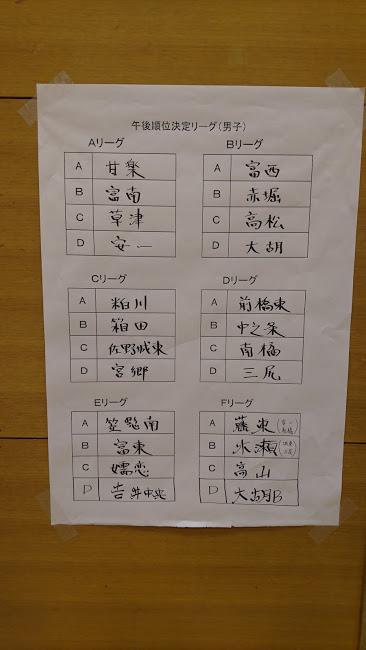 午後順位決定リーグ(男子)
Aリーグ
A 甘楽
B 富南
C 草津
D 安一
Bリーグ
A 富西
B 赤堀
C 高松
D 大胡
Cリーグ
A 粕川
B 箱田
C 佐野城東
D 宮郷
Dリーグ
A 前橋東
B 中之条
C 南橘
D 三尻
Eリーグ
A 笠懸南
B 富東
C 嬬恋
D 吉井中央
Fリーグ
A 藤東
B 水瀬
C 高山
D 大胡B